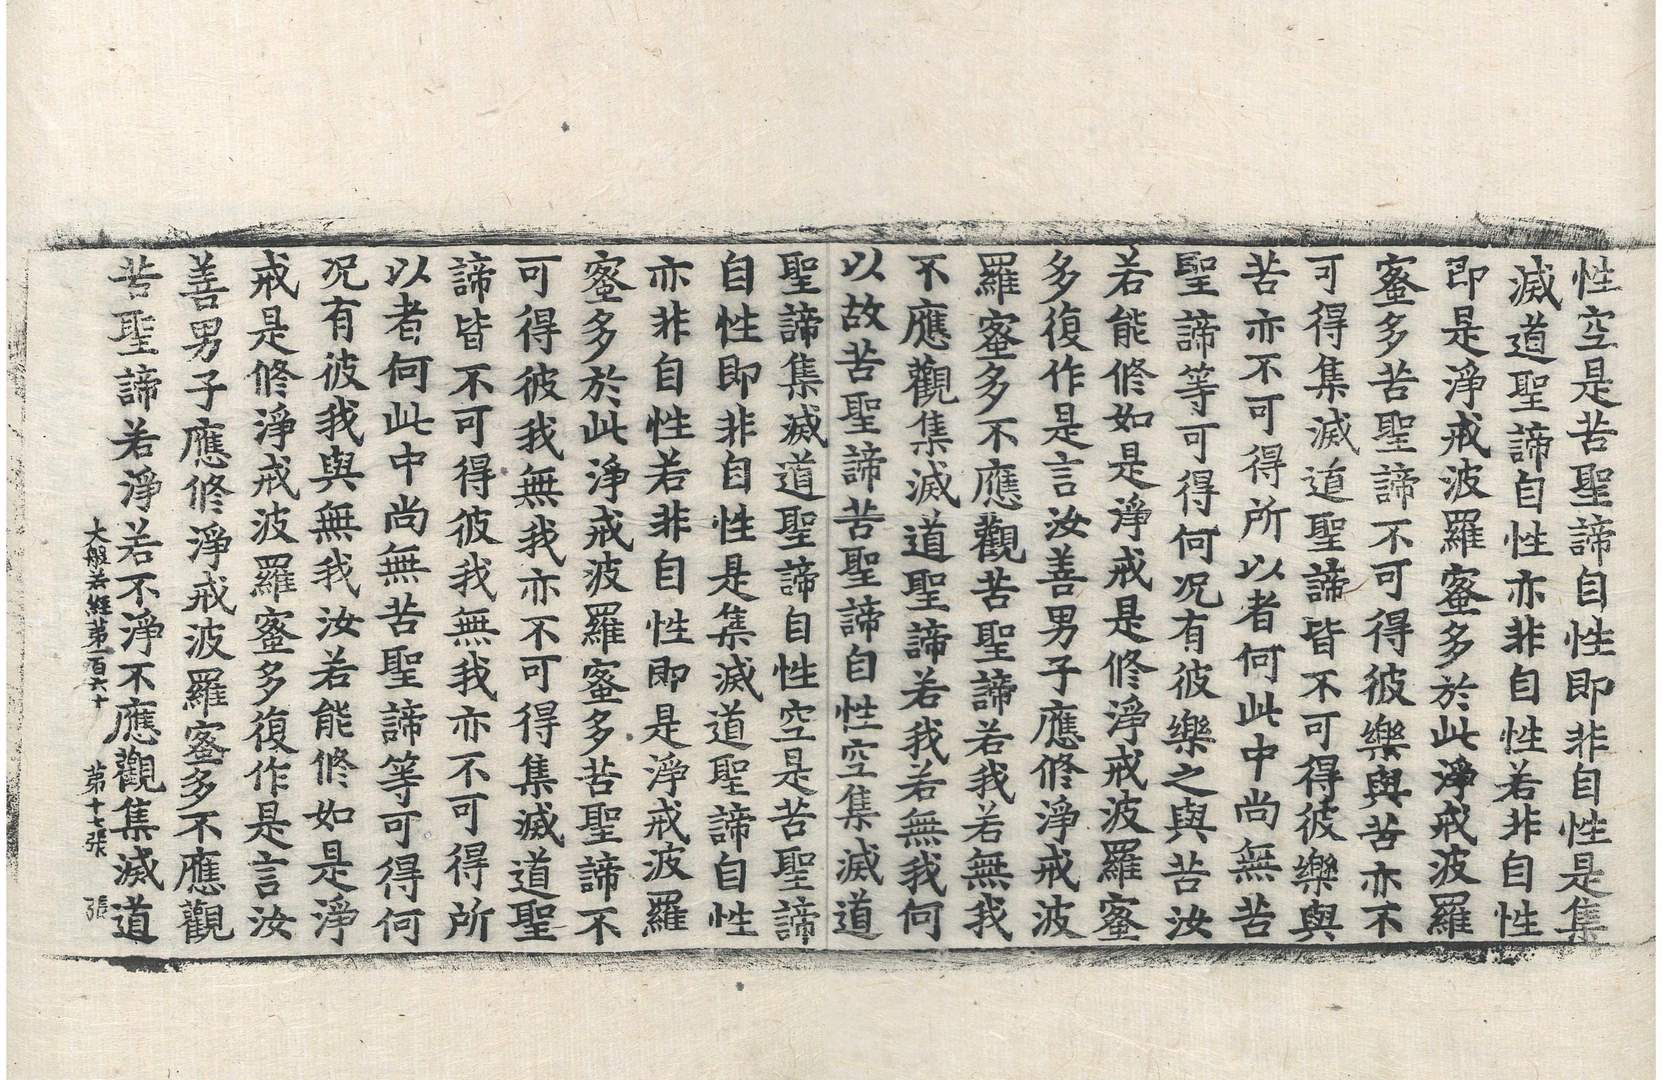 性空是苦聖諦自性即非自性是集
滅道聖諦自性亦非自性若非自性
即是淨戒波羅蜜多於此淨戒波羅
蜜多苦聖諦不可得彼樂與苦亦不
可得集滅道聖諦皆不可得彼樂與
苦亦不可得所以者何此中尚無苦
聖諦等可得何況有彼樂之與苦汝
若能修如是淨戒是修淨戒波羅蜜
多復作是言汝善男子應修淨戒波
羅蜜多不應觀苦聖諦若我若無我
不應觀集滅道聖諦若我若無我何
以故苦聖諦苦聖諦自性空集滅道
聖諦集滅道聖諦自性空是苦聖諦
自性即非自性是集滅道聖諦自性
亦非自性若非自性即是淨戒波羅
蜜多於此淨戒波羅蜜多苦聖諦不
可得彼我無我亦不可得集滅道聖
諦皆不可得彼我無我亦不可得所
以者何此中尚無苦聖諦等可得何
況有彼我與無我汝若能修如是淨
戒是修淨戒波羅蜜多復作是言汝
善男子應修淨戒波羅蜜多不應觀
苦聖諦若淨若不淨不應觀集滅道
大般若經第一百六十 第十七張 張